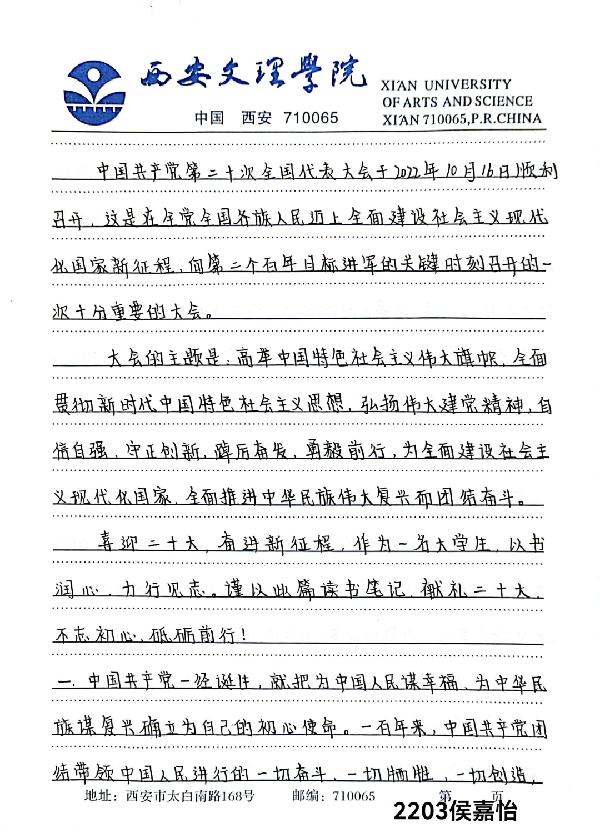 西安文理學院
XI'AN UNIVERSITY
OF ARTS AND SCIENCE
中国 西安 710065 XI'AN 710065,P.R.CHINA
中国共产党第二十次全国代表大会于2022年10月16日顺利
召开,这是在全党全国各族人民迈上全面建设社会主义现代
化国家新征程,向第二个百年目标进军的关键时刻召开的一
次十分重要的大会。
大会的主题是:高举中国特色社会主义伟大旗帜,全面
贯彻新时代中国特色社会主义思想,弘扬伟大建党精神,自
信自强、守正创新,踔厉奋发、勇毅前行,为全面建设社会主
义现代化国家、全面推进中华民族伟大复兴而团结奋斗。
喜迎二十大,奋进新征程,作为一名大学生,以书
润心,力行见志。谨以此篇读书笔记,献礼二十大,
不忘初心,砥砺前行!
一、中国共产党一经诞生,就把为中国人民谋幸福、为中华民
族谋复兴确立为自己的初心使命。一百年来,中国共产党团
结带领中国人民进行的一切奋斗、一切牺牲、一切创造,
地址:西安市太白南路168号 邮编:710065 第 页
2203侯嘉怡